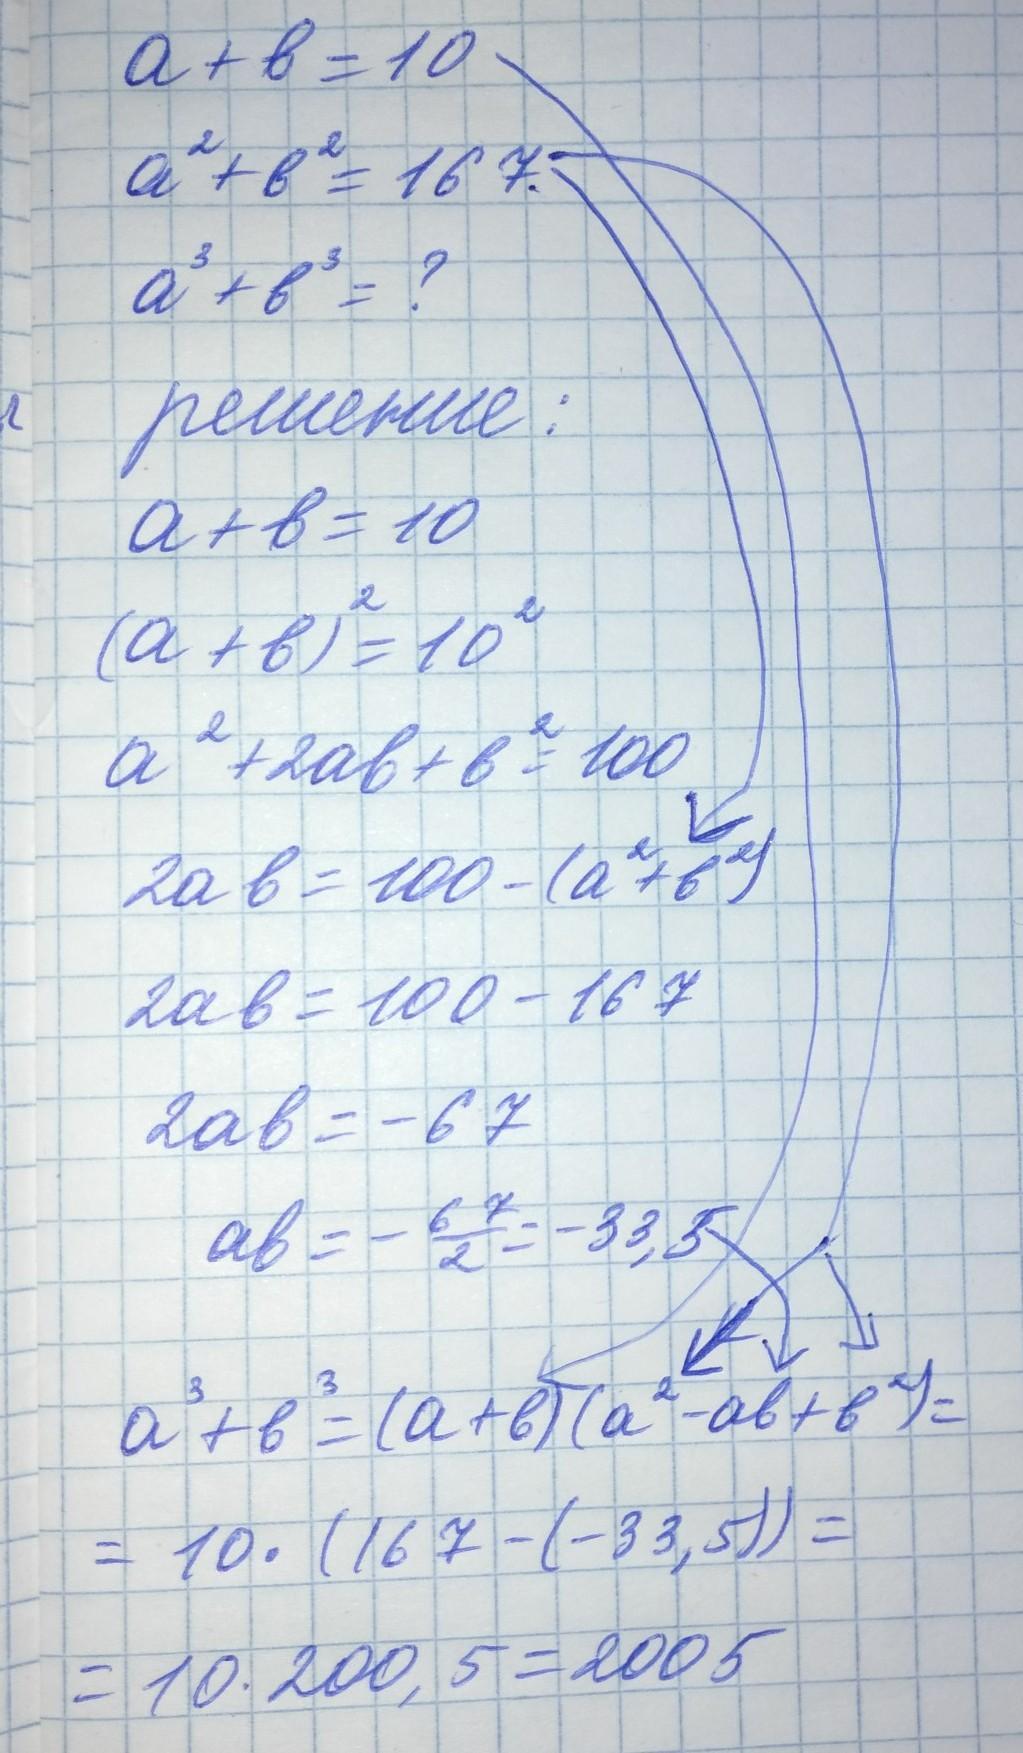 a + b = 10
a² + b² = 167.
a³ + b³ = ?
решение:
a + b = 10
(a + b)² = 10²
a² + 2ab + b² = 100
2ab = 100 - (a² + b²)
2ab = 100 - 167
2ab = - 67
ab = - 67/2 = - 33,5
a³ + b³ = (a + b)(a² - ab + b²) =
= 10 · (167 - (-33,5)) =
= 10 · 200,5 = 2005